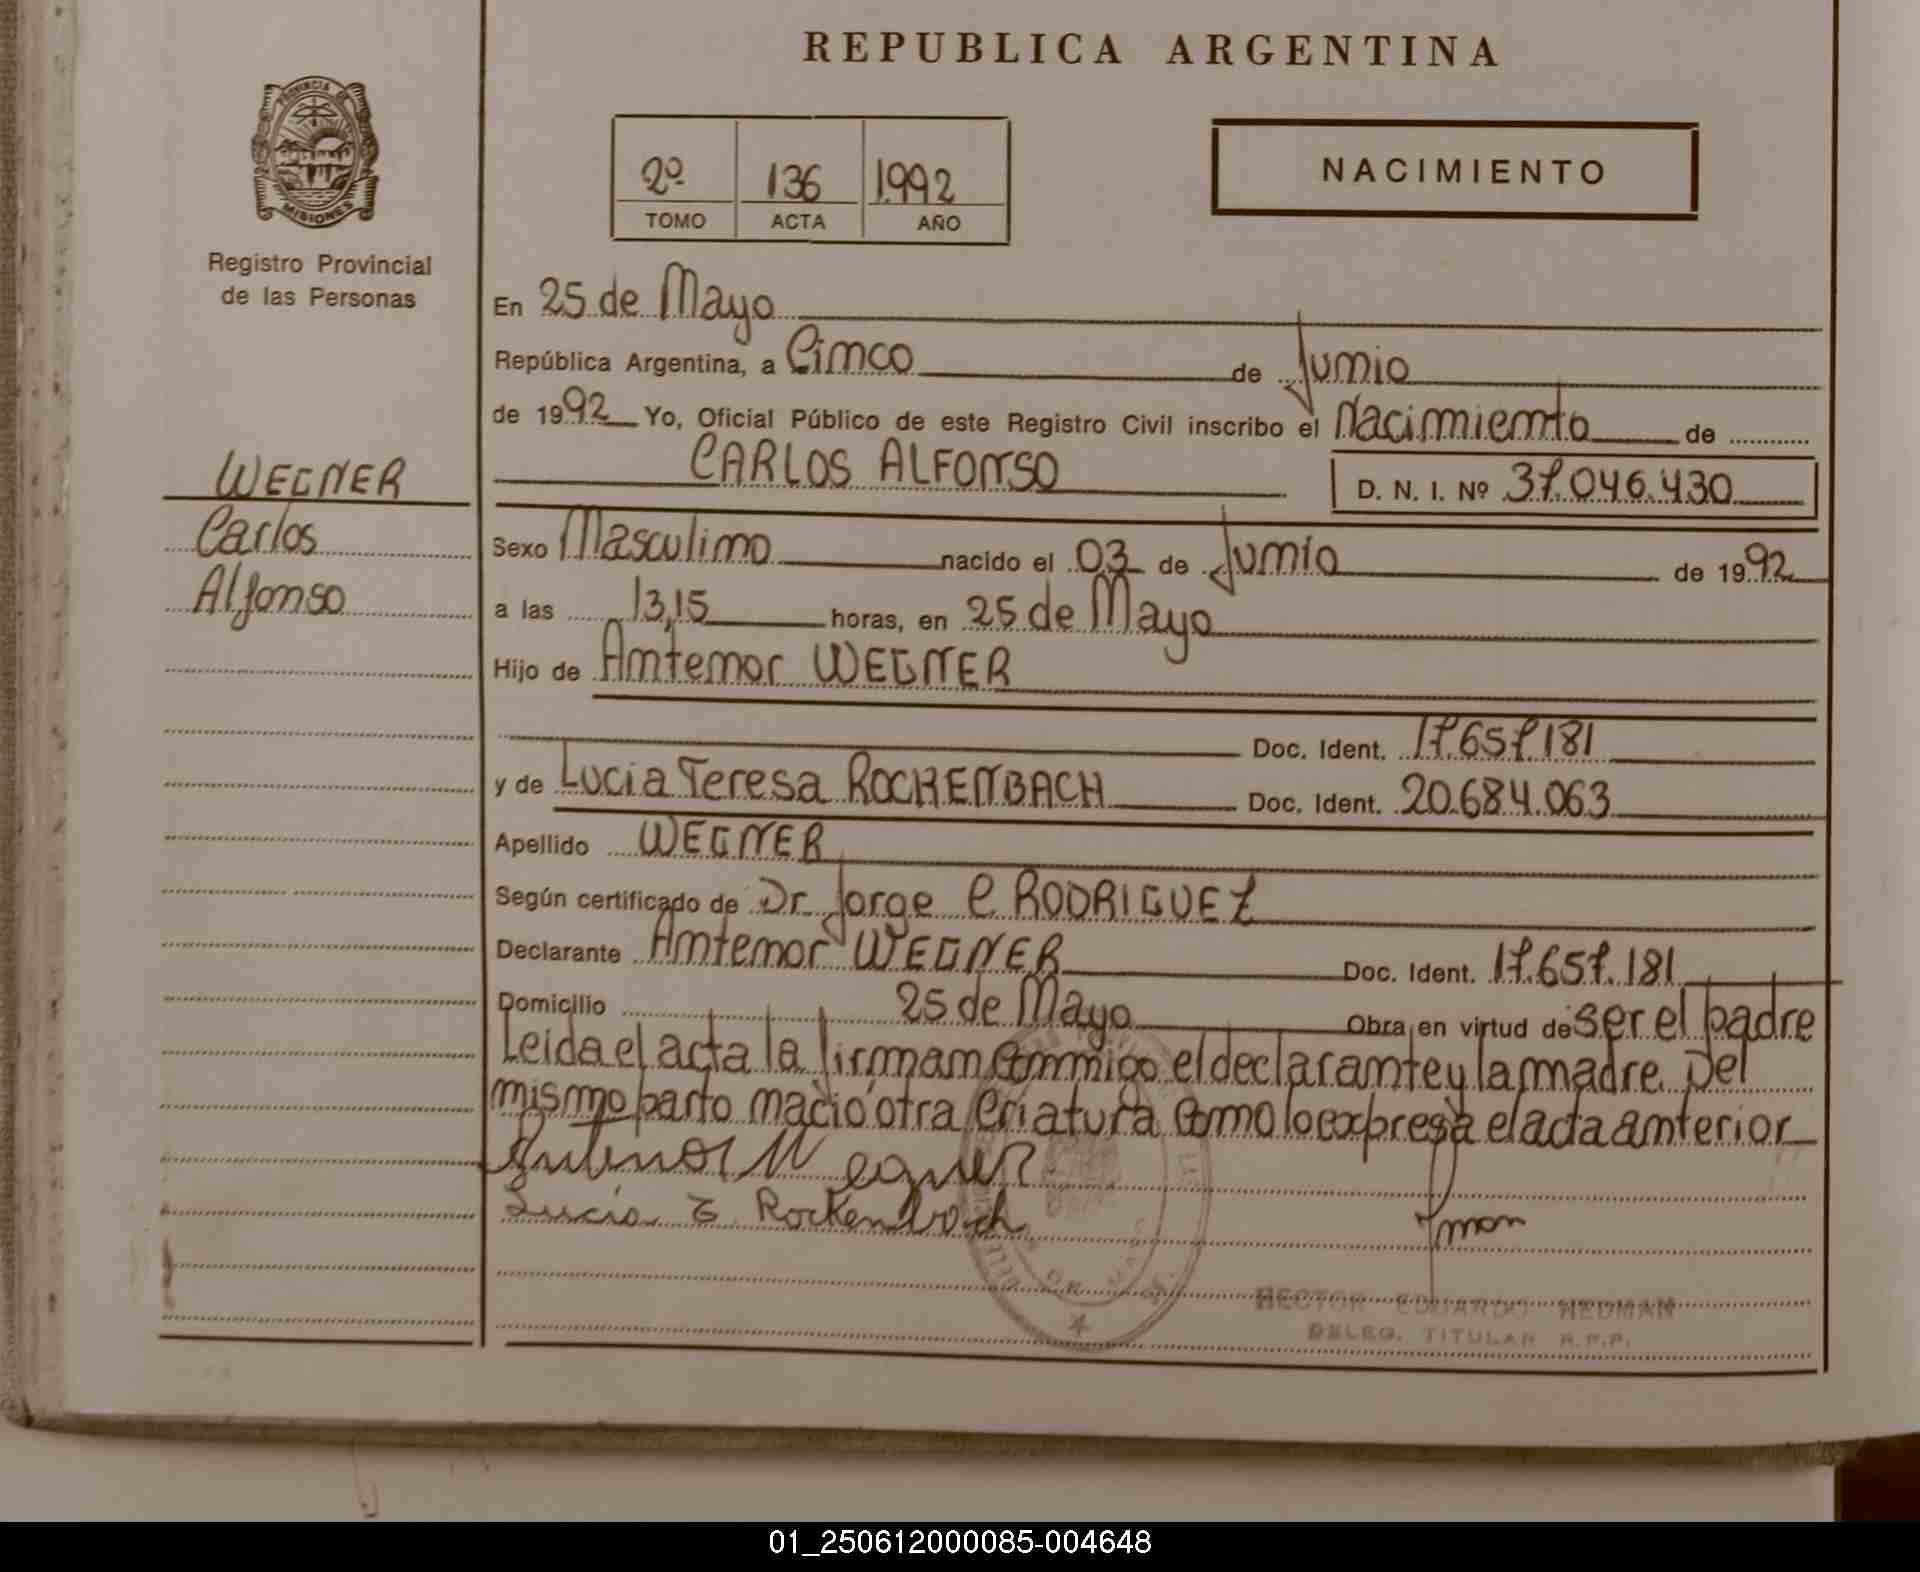 REPUBLICA ARGENTINA
PROVINCIA DE
MISIONES
Registro Provincial
de las Personas
2º 136 1992
TOMO ACTA AÑO
NACIMIENTO
En 25 de Mayo
República Argentina, a Cinco de Junio
de 1992 Yo, Oficial Público de este Registro Civil inscribo el Nacimiento de
CARLOS ALFONSO D. N. I. Nº 37.046.430
WEGNER
Carlos
Alfonso
Sexo Masculino nacido el 03 de Junio de 1992
a las 13,15 horas, en 25 de Mayo
Hijo de Antenor WEGNER
Doc. Ident. 17.657.181
y de Lucia Teresa ROCKENBACH Doc. Ident. 20.684.063
Apellido WEGNER
Según certificado de Dr Jorge C RODRIGUEZ
Declarante Antenor WEGNER Doc. Ident. 17.657.181
Domicilio 25 de Mayo Obra en virtud de ser el padre
Leida el acta la firman conmigo el declarante y la madre. Del
mismo parto nació otra criatura como lo expresa el acta anterior
Antenor Wegner
Lucia T Rockenbach
HECTOR EDUARDO HEDMAN
DELEG. TITULAR R.P.P.
01_250612000085-004648